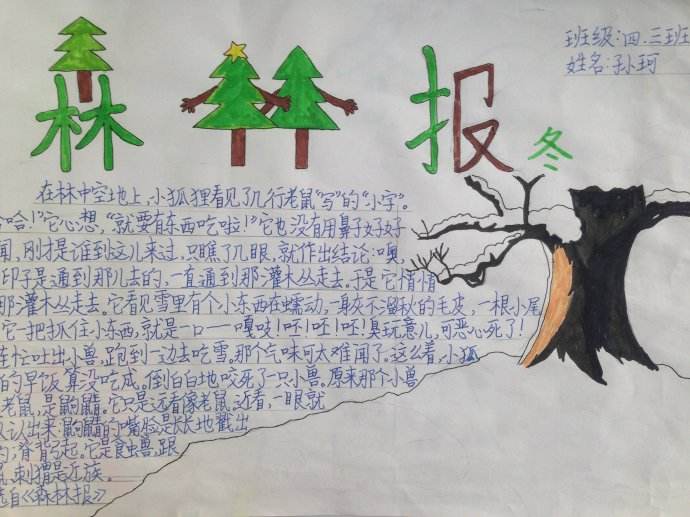 森林报 冬
班级:四.三班
姓名:孙珂
在林中空地上,小狐狸看见了几行老鼠"写"的"小字"。
哈!"它心想,"就要有东西吃啦!"它也没有用鼻子好好
闻,刚才是谁到这儿来过,只瞧了几眼,就作出结论:噢,
印子是通到那儿去的,一直通到那灌木丛走去。于是它悄悄
那灌木丛走去。它看见雪里有个小东西在蠕动,一身灰不溜秋的毛皮,一根小尾
它一把抓住小东西,就是一口——嘎吱!呸!呸!呸!臭玩意儿,可恶心死了!
连忙吐出小兽,跑到一边去吃雪,那个气味可太难闻了。这么着,小狐
的早饭算没吃成。倒白白地咬死了一只小兽。原来那个小兽
老鼠,是鼩鼱。它只是远看像老鼠。近看,一眼就
认出来:鼩鼱的嘴脸是长长地戳出
的,脊背弓起。它是食虫兽,跟
刺猬是近族。
选自《森林报》